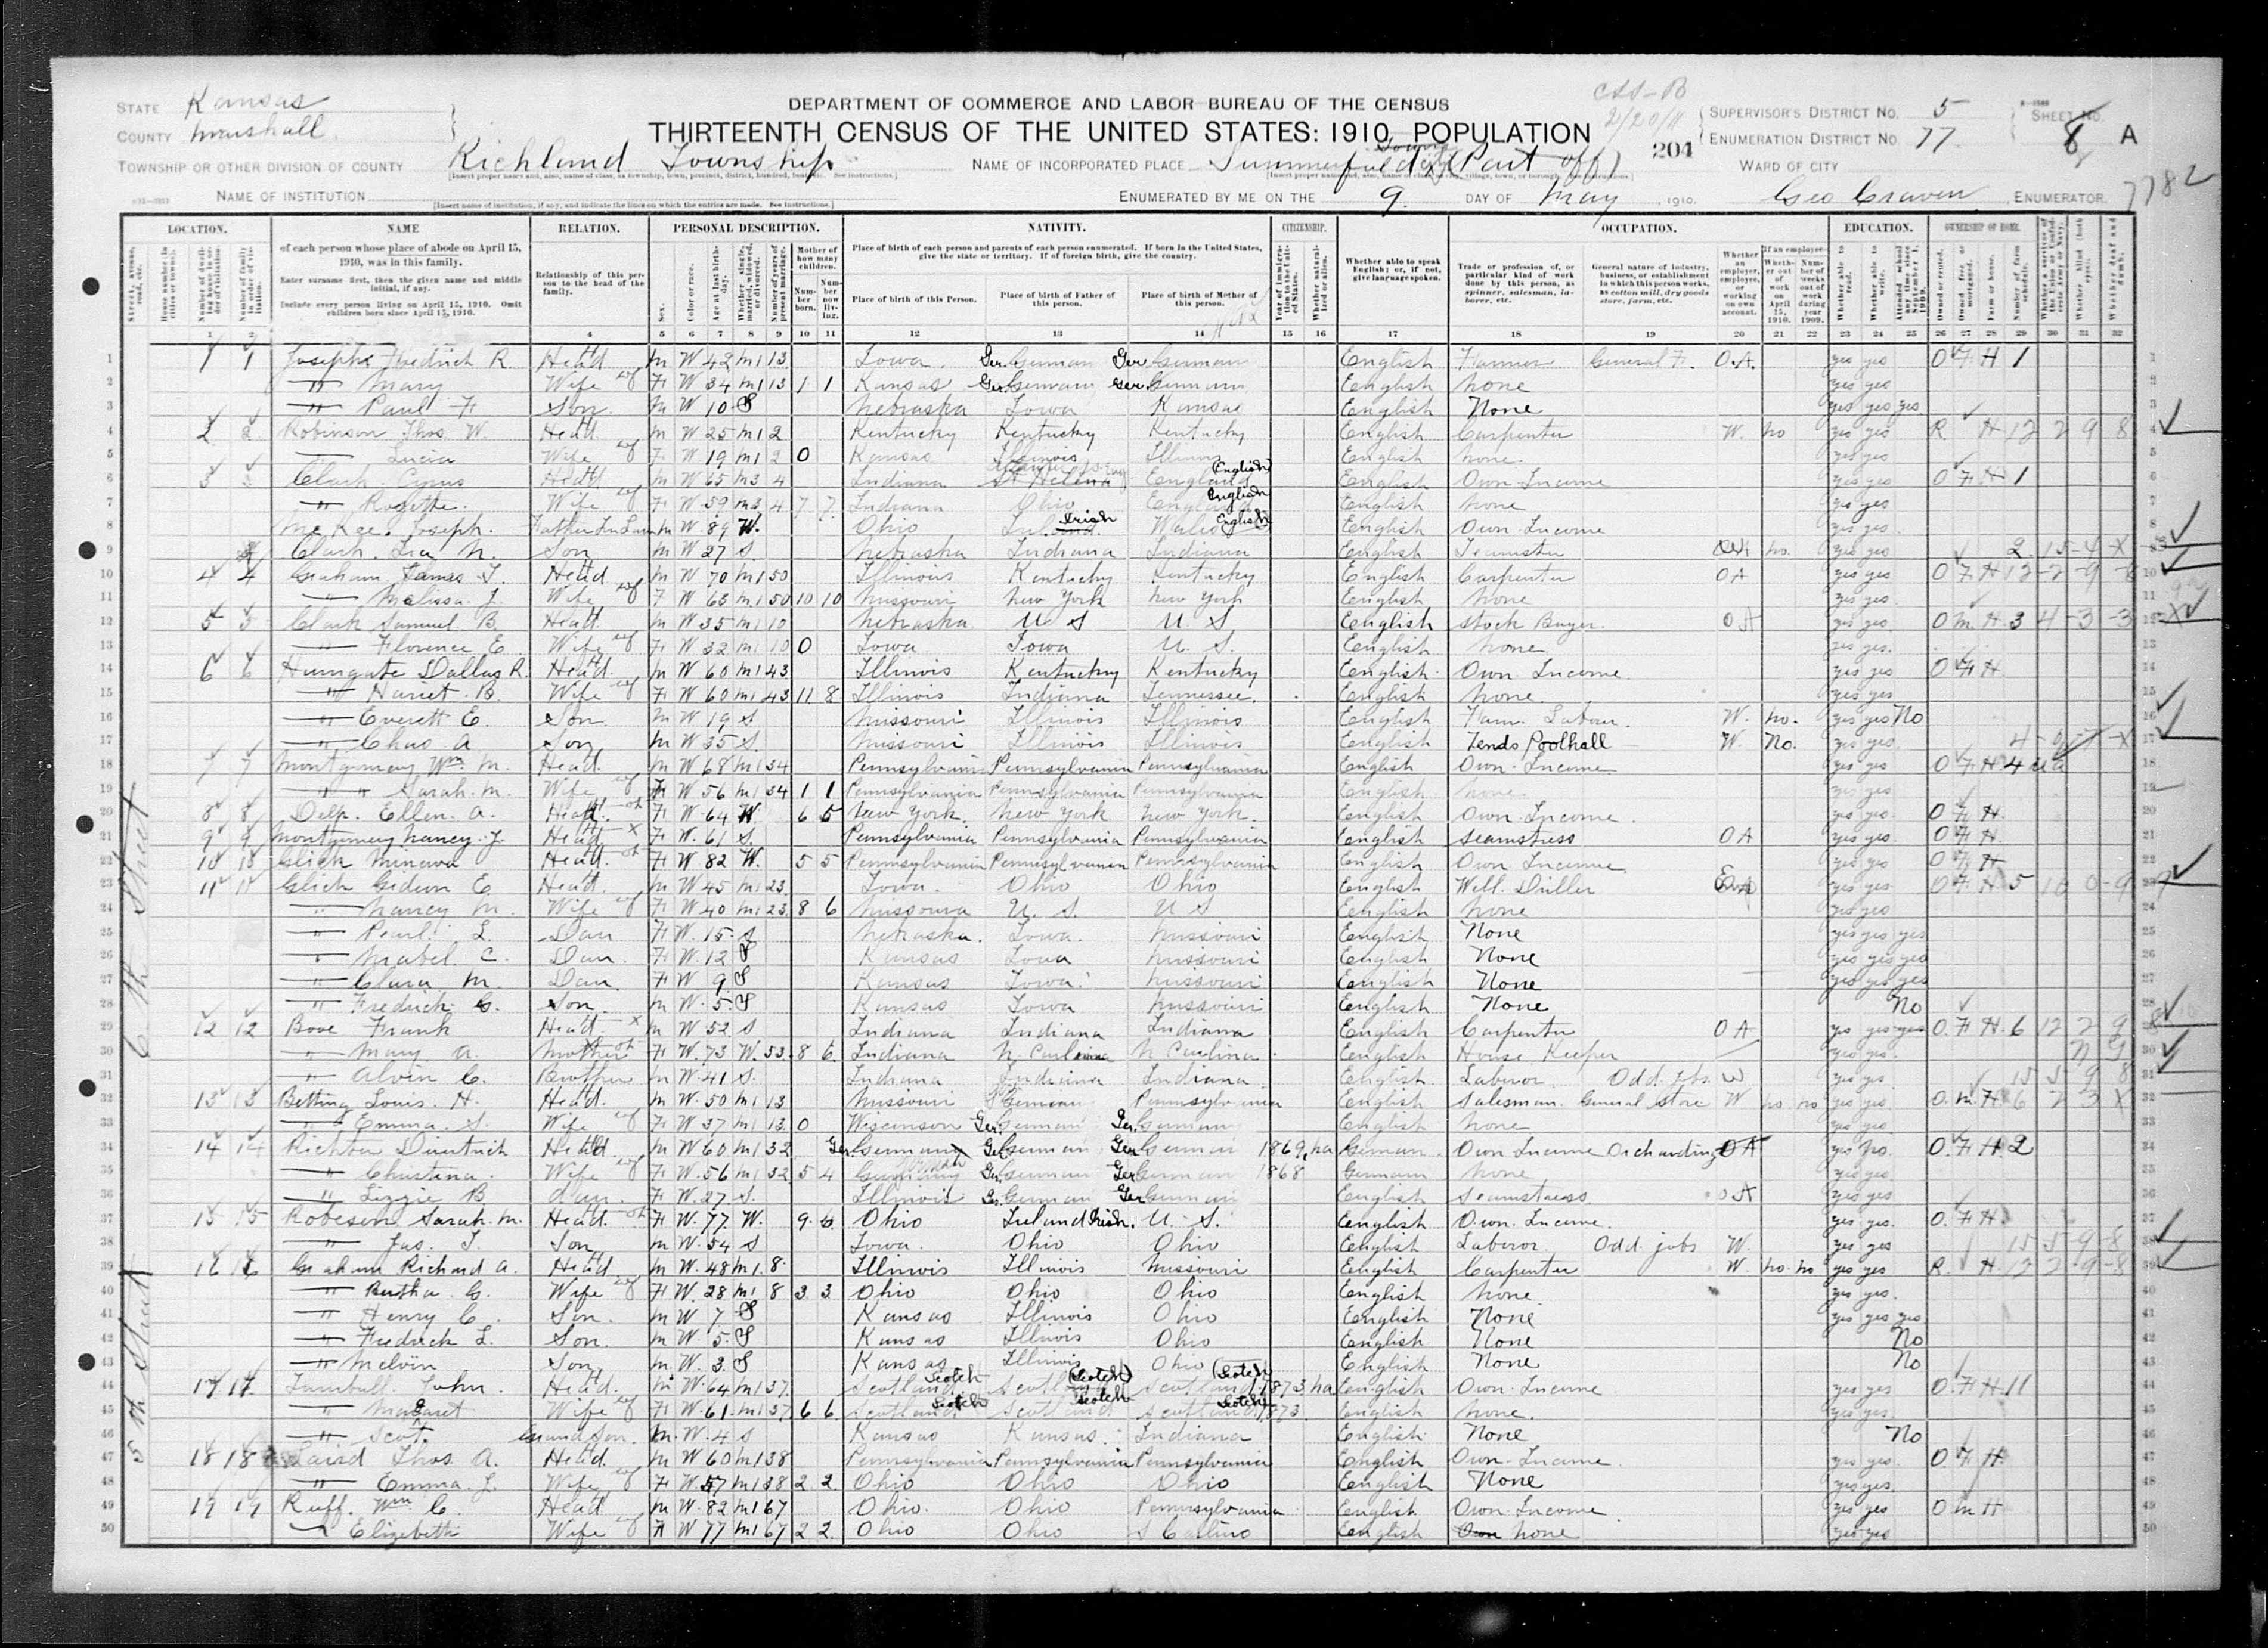 STATE Kansas
COUNTY Marshall
DEPARTMENT OF COMMERCE AND LABOR–BUREAU OF THE CENSUS
THIRTEENTH CENSUS OF THE UNITED STATES: 1910 POPULATION
2/20/11
204
SUPERVISOR'S DISTRICT NO. 5
ENUMERATION DISTRICT NO. 77
SHEET NO. 8 A
TOWNSHIP OR OTHER DIVISION OF COUNTY Richland Township
NAME OF INCORPORATED PLACE Summerfield (Part off)
WARD OF CITY
7782
NAME OF INSTITUTION
ENUMERATED BY ME ON THE 9. DAY OF May, 1910. Geo Craven, ENUMERATOR.
LOCATION. NAME RELATION. PERSONAL DESCRIPTION. NATIVITY. CITIZENSHIP. OCCUPATION. EDUCATION. OWNERSHIP OF HOME.
of each person whose place of abode on April 15, 1910, was in this family.
Enter surname first, then the given name and middle initial, if any.
Include every person living on April 15, 1910. Omit children born since April 15, 1910.
Relationship of this person to the head of the family.
Place of birth of each person and parents of each person enumerated. If born in the United States, give the state or territory. If of foreign birth, give the country.
Place of birth of this Person. Place of birth of Father of this person. Place of birth of Mother of this person.
Whether able to speak English; or, if not, give language spoken.
Trade or profession of, or particular kind of work done by this person, as spinner, salesman, laborer, etc.
General nature of industry, business, or establishment in which this person works, as cotton mill, dry goods store, farm, etc.
6th Street
1 1 1 Head M W 42 M1 13 Iowa Ger. German Ger. German English Farmer General F. O.A. yes yes O F H 1
2 " Mary Wife F W 34 M1 13 1 1 Kansas Ger. German Ger. German English None yes yes
3 " Paul F Son M W 10 S Nebraska Iowa Kansas English None yes yes yes
4 2 2 Robinson Thos. W. Head M W 25 M1 2 Kentucky Kentucky Kentucky English Carpenter W. no yes yes R H
5 " Lucia Wife F W 19 M1 2 0 Kansas Illinois Illinois English None yes yes
6 3 3 Clark Cyrus Head M W 65 M3 4 Indiana St Helena England (English) English Own Income O F H 1
7 " Wife F W 59 M3 4 7 7 Indiana Ohio England English English None yes yes
8 McKee, Joseph. Father In Law M W 89 W. Ohio Irish Wales English English Own Income yes yes
9 Clark, Ira N. Son M W 27 S Nebraska Indiana Indiana English Teamster no. yes yes
10 4 4 Graham James T. Head M W 70 M1 50 Illinois Kentucky Kentucky English Carpenter O A yes yes O F H
11 " Melissa J. Wife F W 63 M1 50 10 10 Missouri New York New York English None yes yes
12 5 5 Clark Samuel B. Head M W 35 M1 10 Nebraska U S U S English Stock Buyer. O A yes yes O M H 3
13 " Florence E Wife F W 32 M1 10 0 Iowa Iowa U. S. English None yes yes
14 6 6 Dallas R. Head M W 60 M1 43 Illinois Kentucky Kentucky English Own Income yes yes O F H
15 " Harriet B. Wife F W 60 M1 43 11 8 Illinois Indiana Tennessee. English None yes yes
16 " Everett E. Son M W 19 S Missouri Illinois Illinois English Farm Labour. W. no. yes yes No
17 " Chas A Son M W 35 S. Missouri Illinois Illinois English Tends Poolhall W. No. yes yes
18 7 7 Montgomery Wm. M. Head M W 68 M1 34 Pennsylvania Pennsylvania Pennsylvania English Own Income yes yes O F H 4
19 " " Sarah M. Wife F W 56 M1 34 1 1 Pennsylvania Pennsylvania Pennsylvania English None yes yes
20 8 8 Delp. Ellen. A. Head F W 64 W 6 5 New York. New York New York. English Own Income yes yes O F H
21 9 9 Montgomery Nancy J. Head F W. 61 S. Pennsylvania Pennsylvania Pennsylvania English Seamstress O A yes yes O F H
22 10 10 Glick Minerva Head F W 82 W. 5 5 Pennsylvania Pennsylvania Pennsylvania English Own Income yes yes O F H
23 11 11 Glick Gideon E Head M W 45 M1 23 Iowa Ohio Ohio English Well Driller yes yes O F H 5
24 " Nancy M. Wife F W 40 M1 23 8 6 Missouri U. S. U S English None yes yes
25 " Pearl L. Dau F W. 15 S Nebraska. Iowa. Missouri English None yes yes yes
26 " Mabel C. Dau. F W. 12 S Kansas Iowa Missouri English None yes yes yes
27 " Clara M. Dau. F W 9 S Kansas Iowa Missouri English None yes yes yes
28 " Fredrick G. Son M W. 5 S Kansas Iowa Missouri English None No
29 12 12 Bove Frank Head M W 52 S Indiana Indiana Indiana English Carpenter O A yes yes O. F H. 6
30 " Mary A. Mother F W. 73 W. 53 8 6 Indiana N. Carolina N Carolina English House Keeper yes yes
31 " Alvin C. Brother M W 41 S. Indiana Indiana Indiana English Laboror Odd jobs W yes yes
32 13 13 Betting Louis. H. Head. M W. 50 M1 13 Missouri German Pennsylvania English Salesman General Store W no no yes yes O. M H
33 " Emma. S. Wife F W 37 M1 13 0 Wisconsin Ger. German Ger. German English None yes yes
34 14 14 Richter Dietrich Head M W 60 M1 32 Ger. Germany Ger. German Ger. German 1869 na German Own Income Orcharding O A yes yes O. F H 2
35 " Christana. Wife F W. 56 M1 32 5 4 Germany Ger. German Ger. German 1868 German None yes yes
36 " Lizzie B dau. F W. 27 S. Illinois Ger. German Ger. German English Seamstress O A yes yes
37 15 15 Robeson Sarah. M. Head F W. 77 W. 9 6 Ohio Ireland Irish. U. S. English Own Income. yes yes O. F H.
38 " Jas. T. Son M W. 54 S Iowa. Ohio Ohio English Laboror Odd jobs W. yes yes
39 16 16 Graham Richard A. Head M W. 48 M1 8 Illinois Illinois Missouri English Carpenter W no no yes yes R H
40 " Bertha C. Wife F W. 28 M1 8 3 3 Ohio Ohio Ohio English None yes yes
41 " Henry C. Son. M W 7 S Kansas Illinois Ohio English None yes yes yes
42 " Fredrick L. Son. M W. 5 S Kansas Illinois Ohio English None No
43 " Melvin Son M W. 3 S Kansas Illinois Ohio English None No
5th Street
44 17 17 Turnbull John. Head. M W. 64 M1 37 Scotland Scotch Scotland (Scotch) Scotland (Scotch) 1873 na English Own Income yes yes O. F H 11
45 " Margaret Wife F W. 61 M1 37 6 6 Scotland Scotch Scotland Scotch Scotland Scotch 1873 English None. yes yes
46 " Scot. Grand Son. M. W. 4 S Kansas Kansas. Indiana English None No
47 18 18 Laird Thos. A. Head. M W 60 M1 38 Pennsylvania Pennsylvania Pennsylvania English Own Income yes yes O. F H.
48 " Emma. J. Wife F W. 57 M1 38 2 2 Ohio Ohio Ohio English None yes yes
49 19 19 Ruff. Wm C. Head M W. 82 M1 67 Ohio. Ohio Pennsylvania English Own Income yes yes O M H
50 " Elizabeth Wife F W 77 M1 67 2 2 Ohio Ohio S Carlino English None yes yes